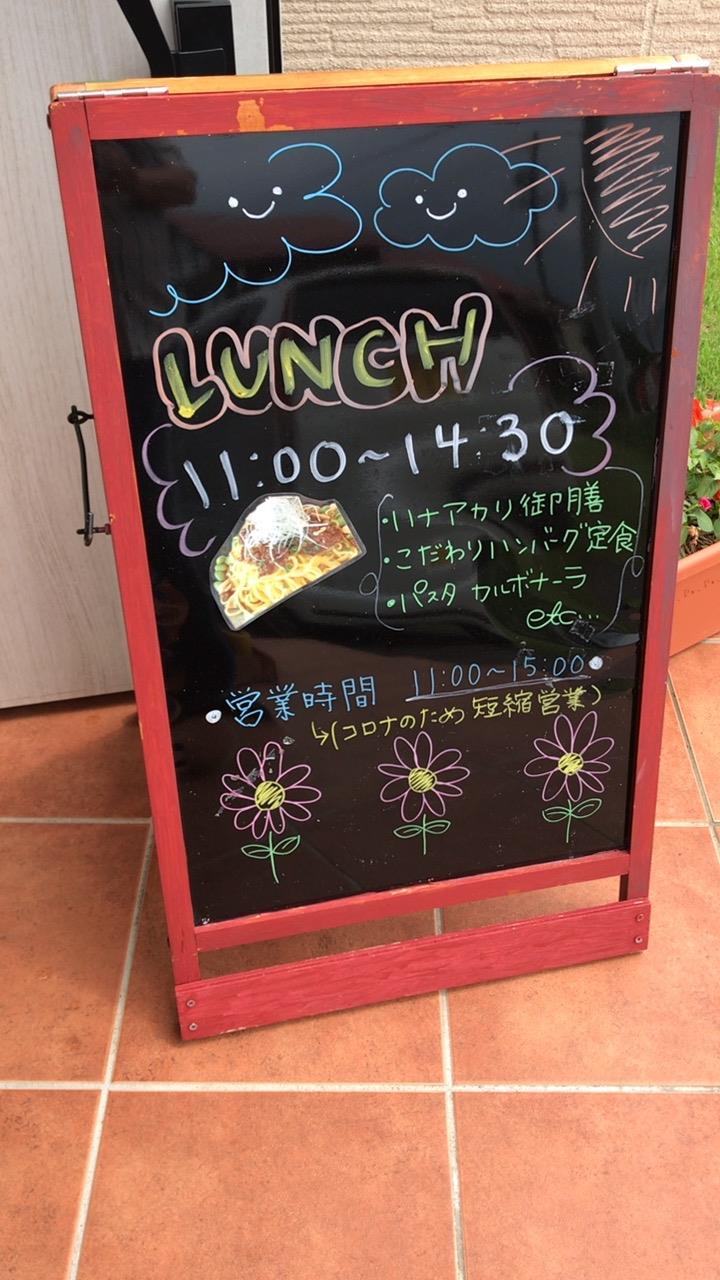 LUNCH
11:00~14:30
・ハナアカリ御膳
・こだわりハンバーグ定食
・パスタ カルボナーラ
etc...
・営業時間 11:00~15:00・
↳(コロナのため 短縮営業)